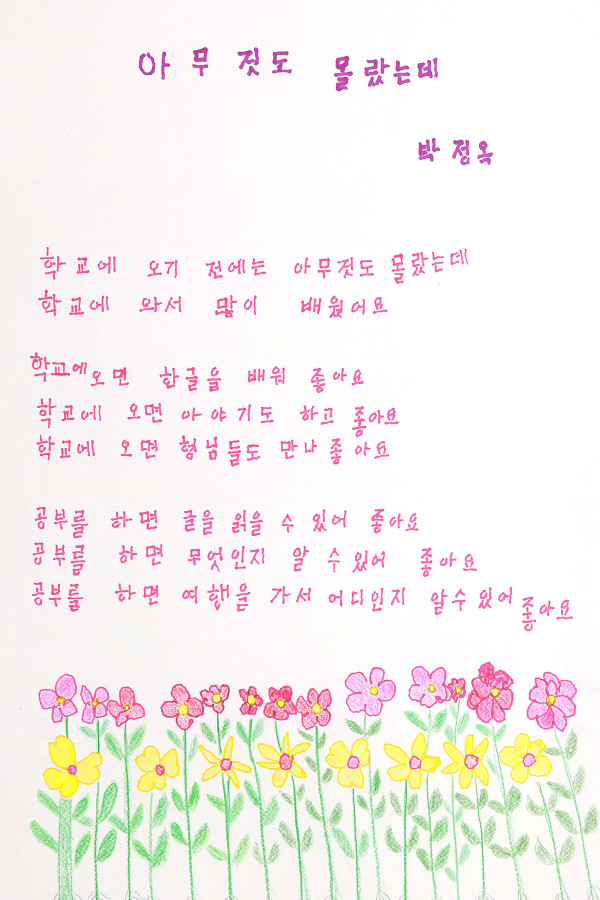 아무것도 몰랐는데
박정옥
학교에 오기 전에는 아무것도 몰랐는데
학교에 와서 많이 배웠어요
학교에오면 한글을 배워 좋아요
학교에 오면 아야기도 하고 좋아요
학교에 오면 형님들도 만나 좋아요
공부를 하면 글을 읽을 수 있어 좋아요
공부를 하면 무엇인지 알 수 있어 좋아요
공부를 하면 여행을 가서 어디인지 알수있어 좋아요